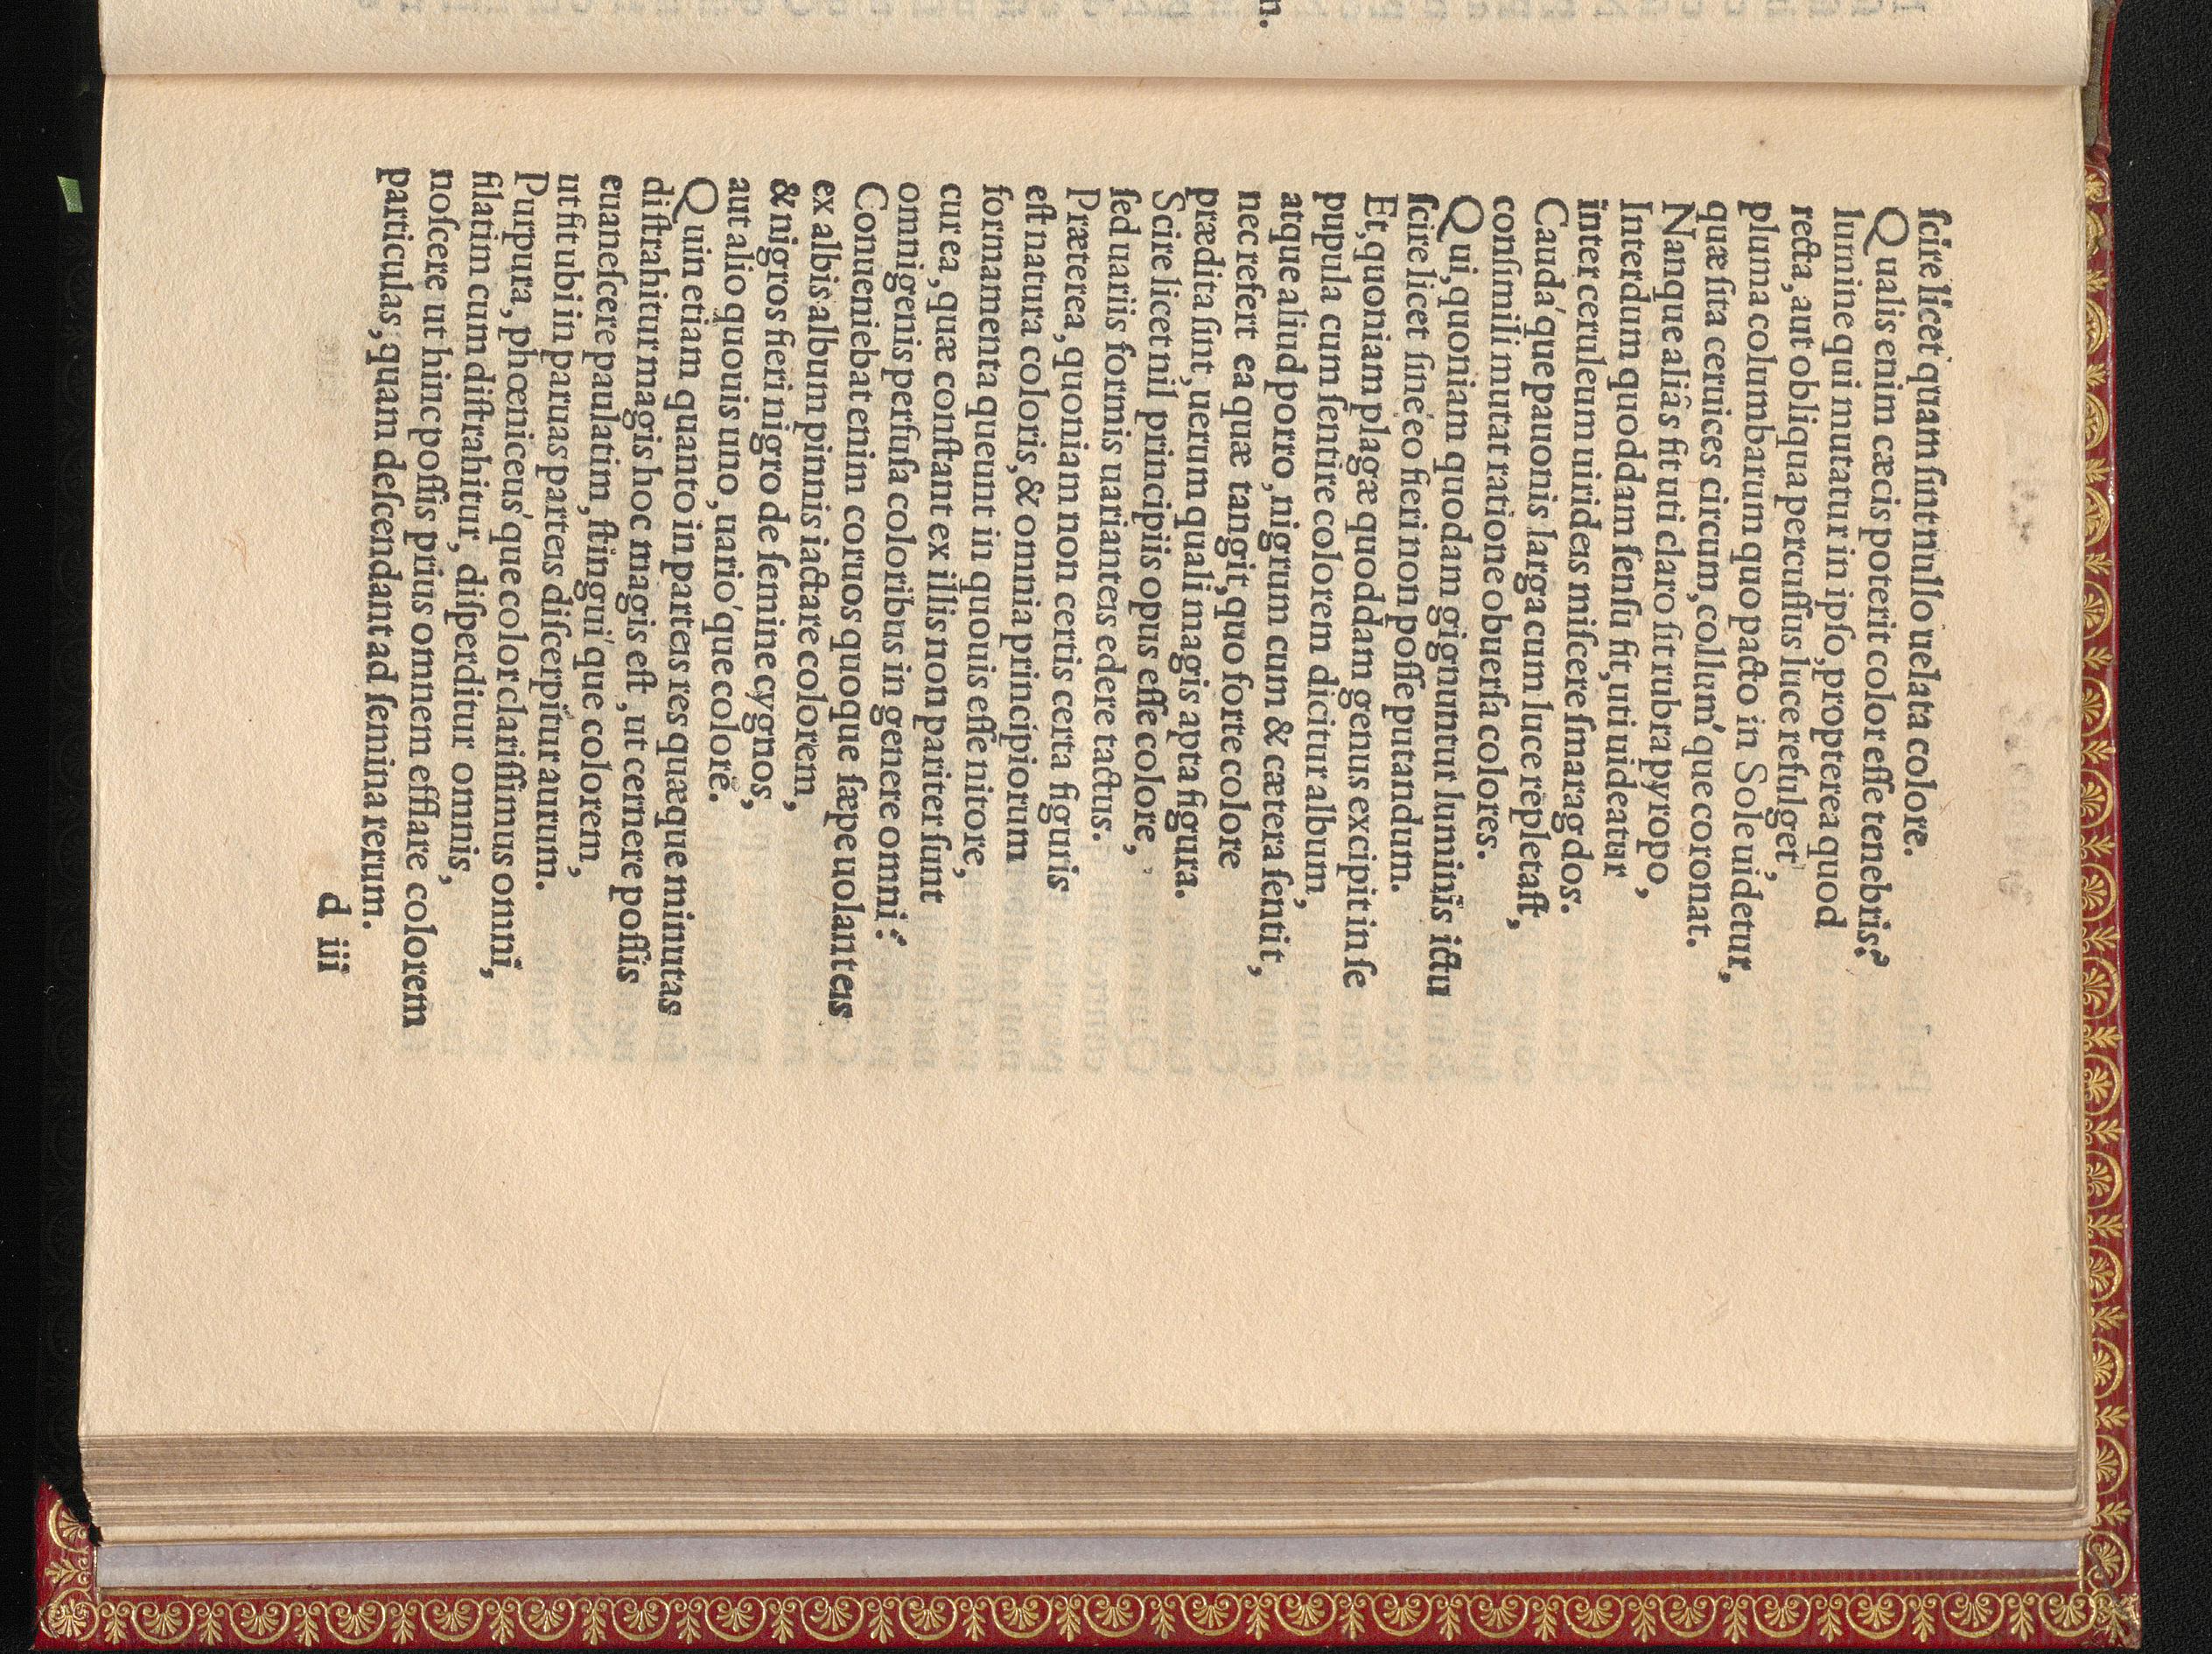 ſcire licet quam ſint nullo uelata colore.
Qualis enim cæcis poterit color eſſe tenebris?
lumine qui mutatur in ipſo, propterea quod
recta, aut obliqua percuſſus luce refulget,
pluma columbarum quo pacto in Sole uidetur,
quæ ſita ceruices circum, collum'que coronat.
Nanque aliâs fit uti claro ſit rubra pyropo,
Interdum quoddam ſenſu fit, uti uideatur
inter ceruleum uirideis miſcere ſmaragdos.
Cauda'que pauonis larga cum luce repletaſt,
conſimili mutat ratione obuerſa colores.
Qui, quoniam quodam gignuntur luminis ictu
ſcire licet ſine eo fieri non poſſe putandum.
Et, quoniam plagæ quoddam genus excipit in ſe
pupula cum ſentire colorem dicitur album,
atque aliud porro, nigrum cum & cætera ſentit,
nec refert ea quæ tangit, quo forte colore
prædita ſint, uerum quali magis apta figura.
Scire licet nil principiis opus eſſe colore,
ſed uariis formis uarianteis edere tactus.
Præterea, quoniam non certis certa figuris
eſt natura coloris, & omnia principiorum
formamenta queunt in quouis eſſe nitore,
cur ea, quæ conſtant ex illis non pariter ſunt
omnigenis perfuſa coloribus in genere omni?
Conueniebat enim coruos quoque ſæpe uolanteis
ex albis album pinnis iactare colorem,
& nigros fieri nigro de ſemine cygnos,
aut alio quouis uno, uario'que colore.
Quin etiam quanto in parteis res quæque minutas
diſtrahitur magis hoc magis eſt, ut cernere poſſis
euaneſcere paulatim, ſtingui'que colorem,
ut fit ubi in paruas parteis diſcerpitur aurum.
Purpura, phœniceus'que color clariſſimus omni,
filatim cum diſtrahitur, diſperditur omnis,
noſcere ut hinc poſſis prius omnem efflare colorem
particulas, quam deſcendant ad ſemina rerum.
d iii